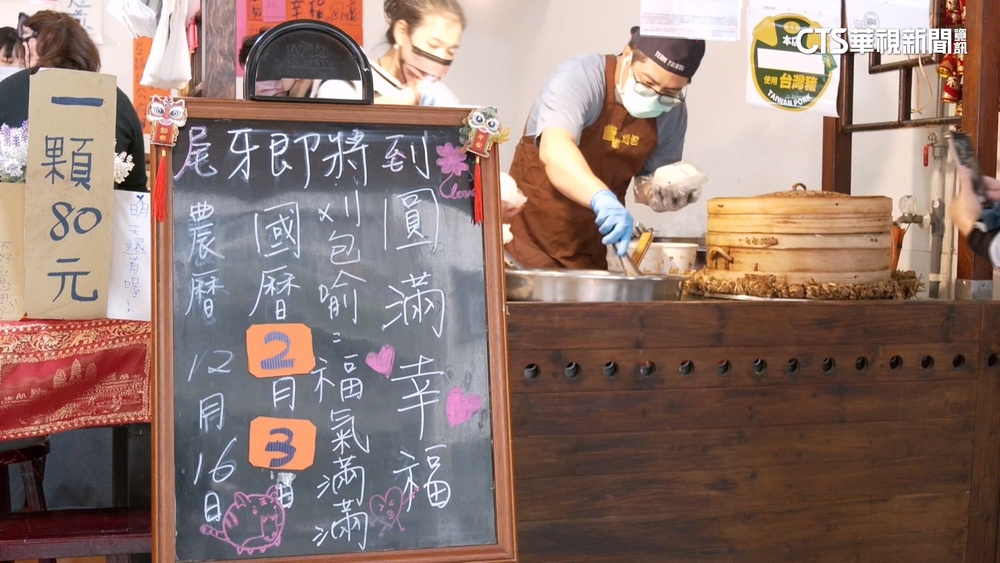 CTS華視新聞資訊
本店
使用
台灣豬
TAIWAN PORK
一顆80元
尾牙即將到
love
圓滿幸福
刈包喻:福氣滿滿
國曆2月3日
農曆12月16日